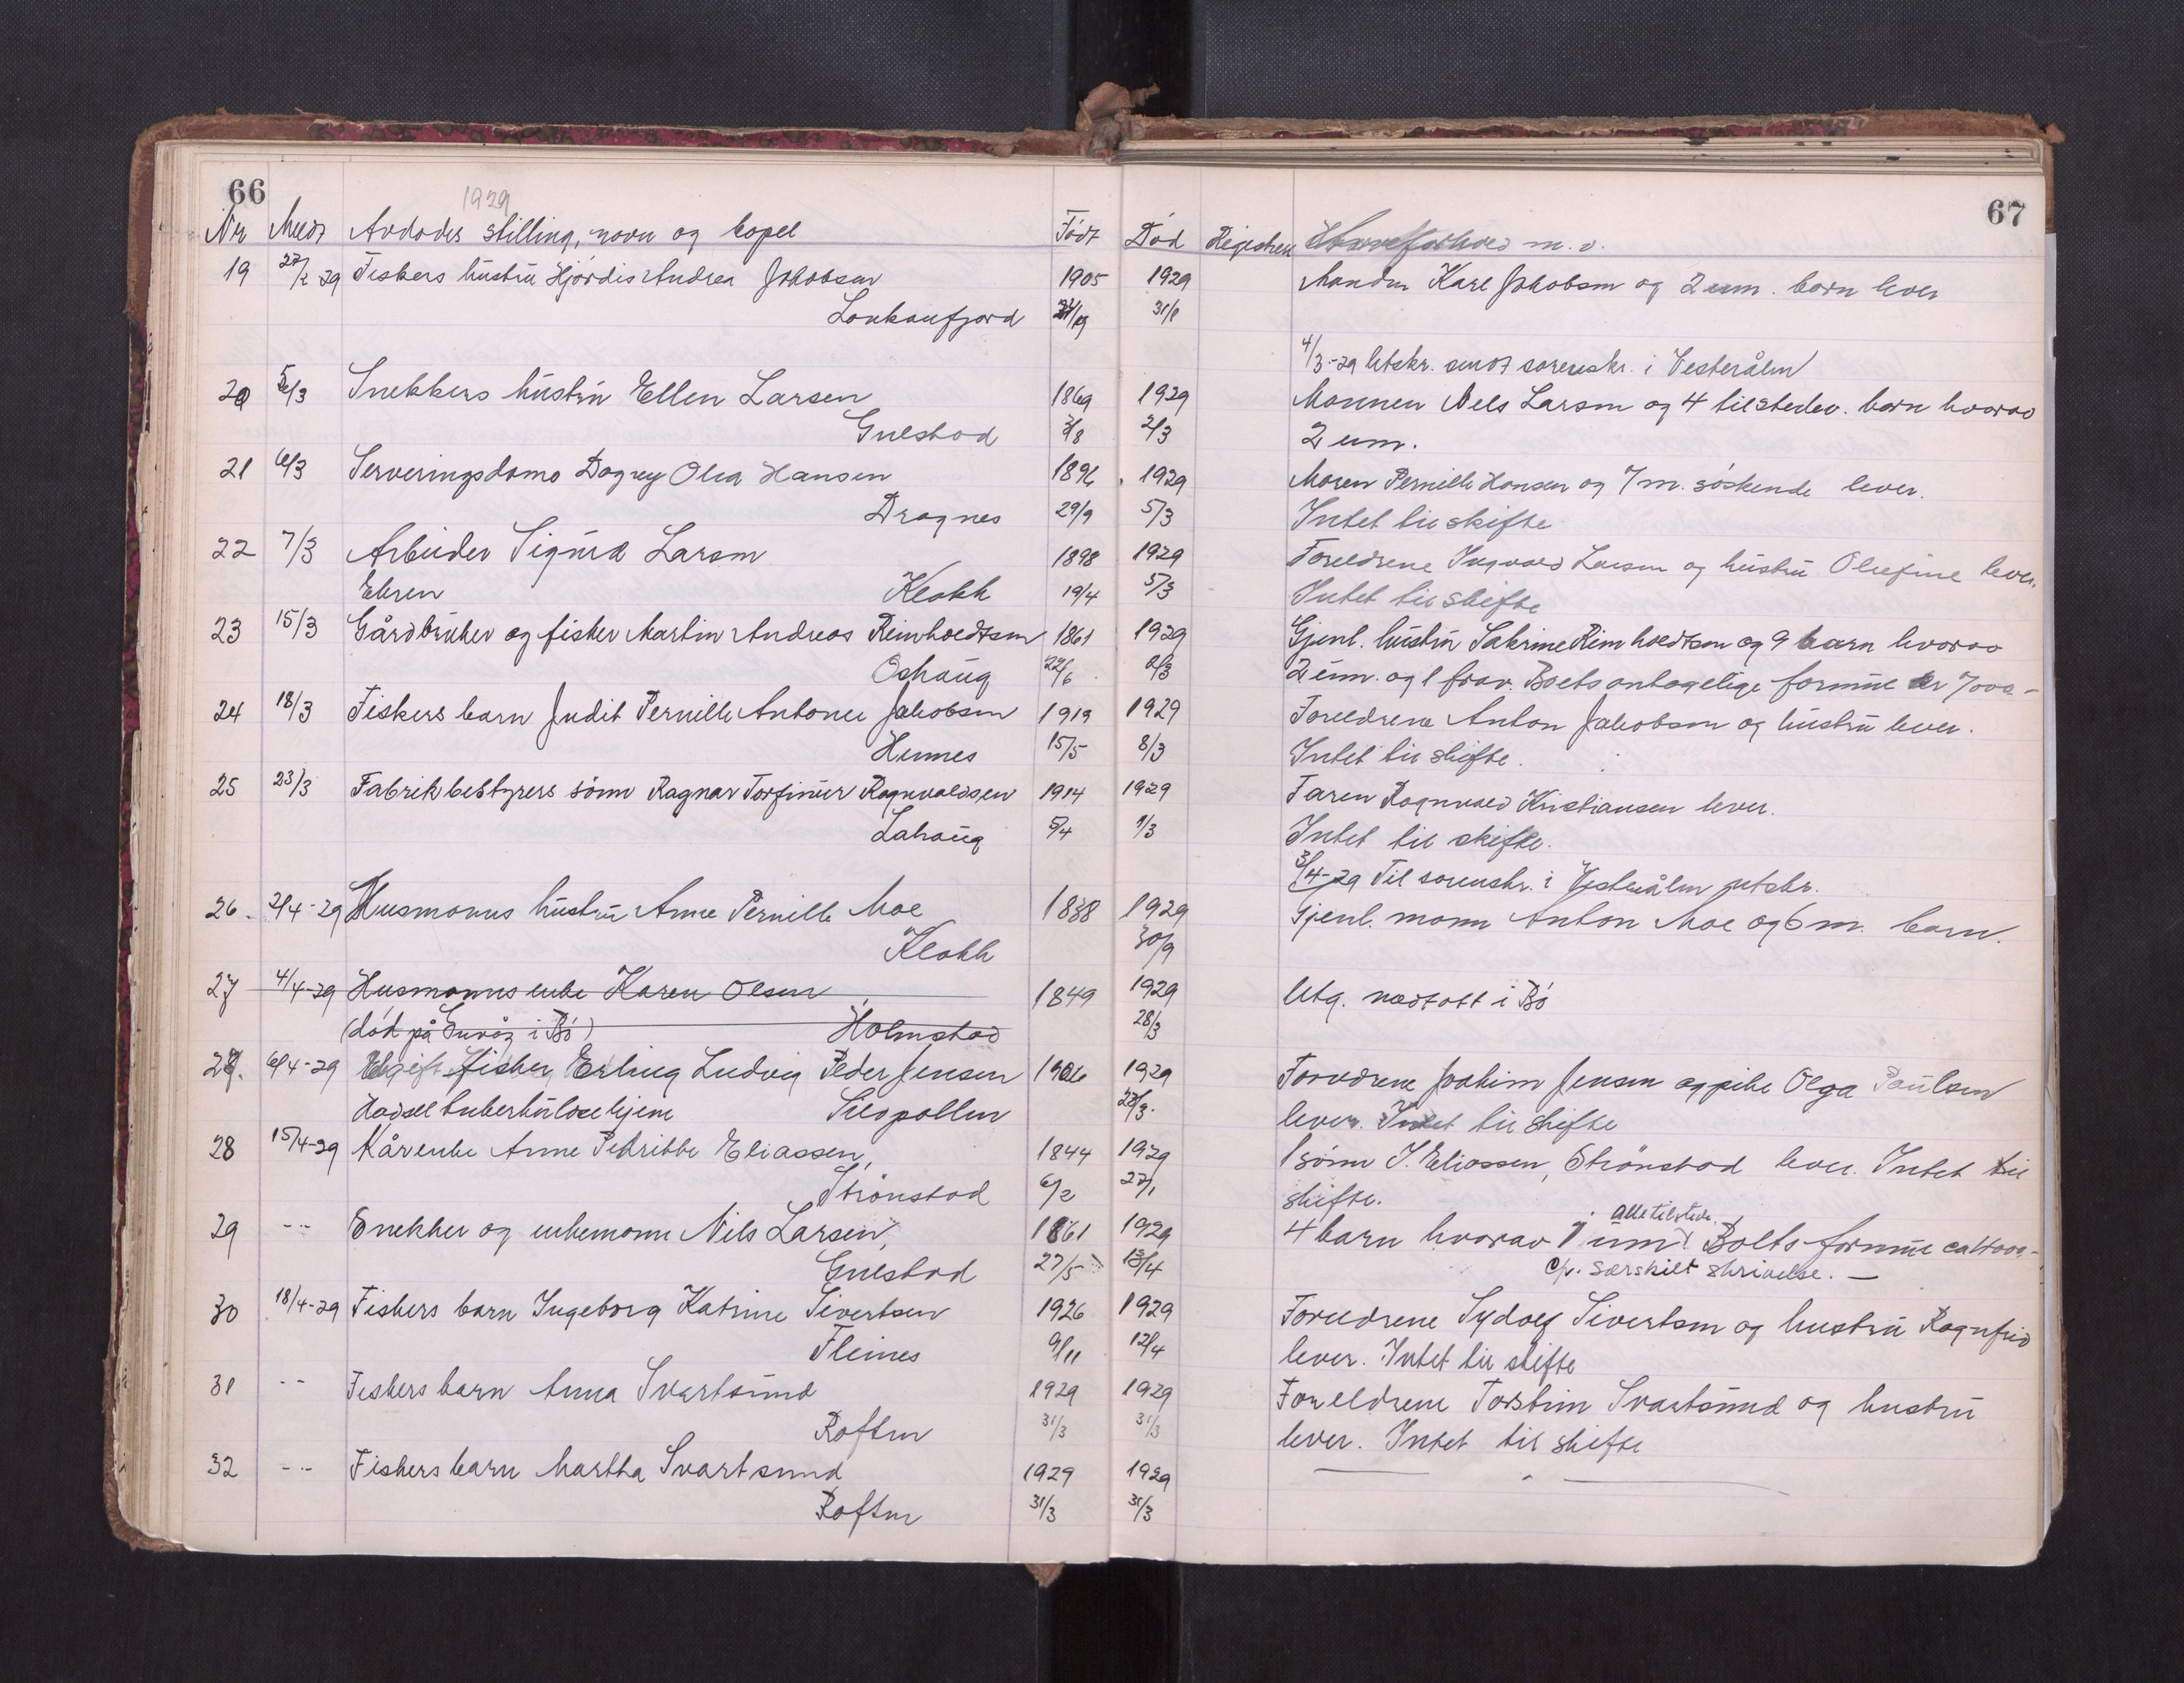 66
1929
67
Nr Med Avdødes stilling, navn og bopel Født Død Registrert m. v.
19 27/2 29 Fiskers hustru Hjørdis Andrea Jakobsen 1905 1929 Manden Karl Jakobsen og 2 um. barn lever
Lonkanfjord 31/1
4/3-29 Utskr. sendt sorenskr. i Vesterålen
20 5/3 Snekkers hustru Ellen Larsen 1869 1929 Mannen Nels Larsen og 4 tilstedev. barn hvorav
Guldstad 2/3 2 um.
21 6/3 Serveringsdame Dagny Olea Hansen 1896 1929 Moren Pernille Hansen og 7 m. søskende lever.
Dragnes 29/9 5/3 Intet til skifte
22 7/3 Arbeider Sigurd Larsen 1898 1929 Foreldrene Ingvald Larsen og hustru Olufine lever.
Klakk 19/4 5/3 Intet til skifte
23 15/3 Gårdbruker og fisker Martin Andreas Reinholdtsen 1861 1929 Gjenl. hustru Sakrine Reinholdtsen og 9 barn hvorav
Oshaug 22/6 2/3 2 um. og 1 frav. Boets antagelige formue er 7000-
24 18/3 Fiskers barn Judit Pernille Antonie Jakobsen 1919 1929 Foreldrene Anton Jakobsen og hustru lever.
Hennes 15/5 8/3 Intet til skifte.
25 23/3 Fabrikbestyrers sønn Ragnar Torfinur Ragnvaldsen 1914 1929 Faren Ragnvald Kristiansen lever.
Lahaug 5/4 1/3 Intet til skifte.
3/4-29 Til sorenskr. i Vesterålen utskr.
26. 2/4-29 Husmanns hustru Anne Pernille Moe 1838 1929 Gjenl. mann Anton Moe og 6 m. barn.
Klakk 30/9
27 4/4-29 Husmanns enke Karen Olsen 1849 1929 Utg. nedtatt i Bø
(død på i Bø) Holmstad 28/3
27. 6/4-29 Ugift fisker Erling Ludvig Peder Jensen 1906 1929 Foreldrene Joakim Jensen og pike Olga Paulsen
Hadsel tuberkulosehjem Silopollen 28/3. lever. Intet til skifte
28 15/4-29 Kårenke Anne Petribbe Eliassen, 1844 1929 1 sønn J. Eliassen, Strønstad lever. Intet til
Strønstad 6/2 27/1 skifte.
alle tilstede.
29 -"- Snekker og enkemann Nils Larsen, 1861 1929 4 barn hvorav 1 um. Boets formue ca 4000-
Guldstad 27/5 13/4 særskilt skrivelse. —
30 18/4-29 Fiskers barn Ingeborg Katrine Sivertsen 1926 1929 Foreldrene Sydolf Sivertsen og hustru Ragnfrid
Fleines 9/11 12/4 lever. Intet til skifte
31 -"- Fiskers barn Anna Svartsund 1929 1929 Foreldrene Torstein Svartsund og hustru
Roften 31/3 31/3 lever. Intet til skifte
32 -"- Fiskers barn Martha Svartsund 1929 1929 — " —
Roften 31/3 31/3